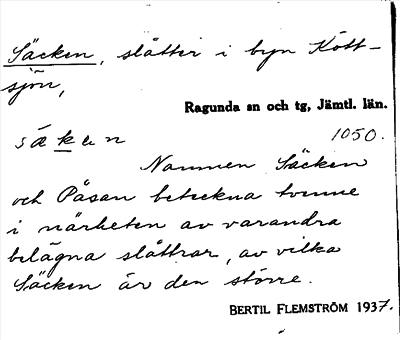 Säcken, slåtter i byn Kött-
sjön,
Ragunda sn och tg, Jämtl. län.
säken 1050.
Namnen Säcken
och Påsan beteckna tvenne
i närheten av varandra
belägna slåttrar, av vilka
Säcken är den större.
BERTIL FLEMSTRÖM 1937.